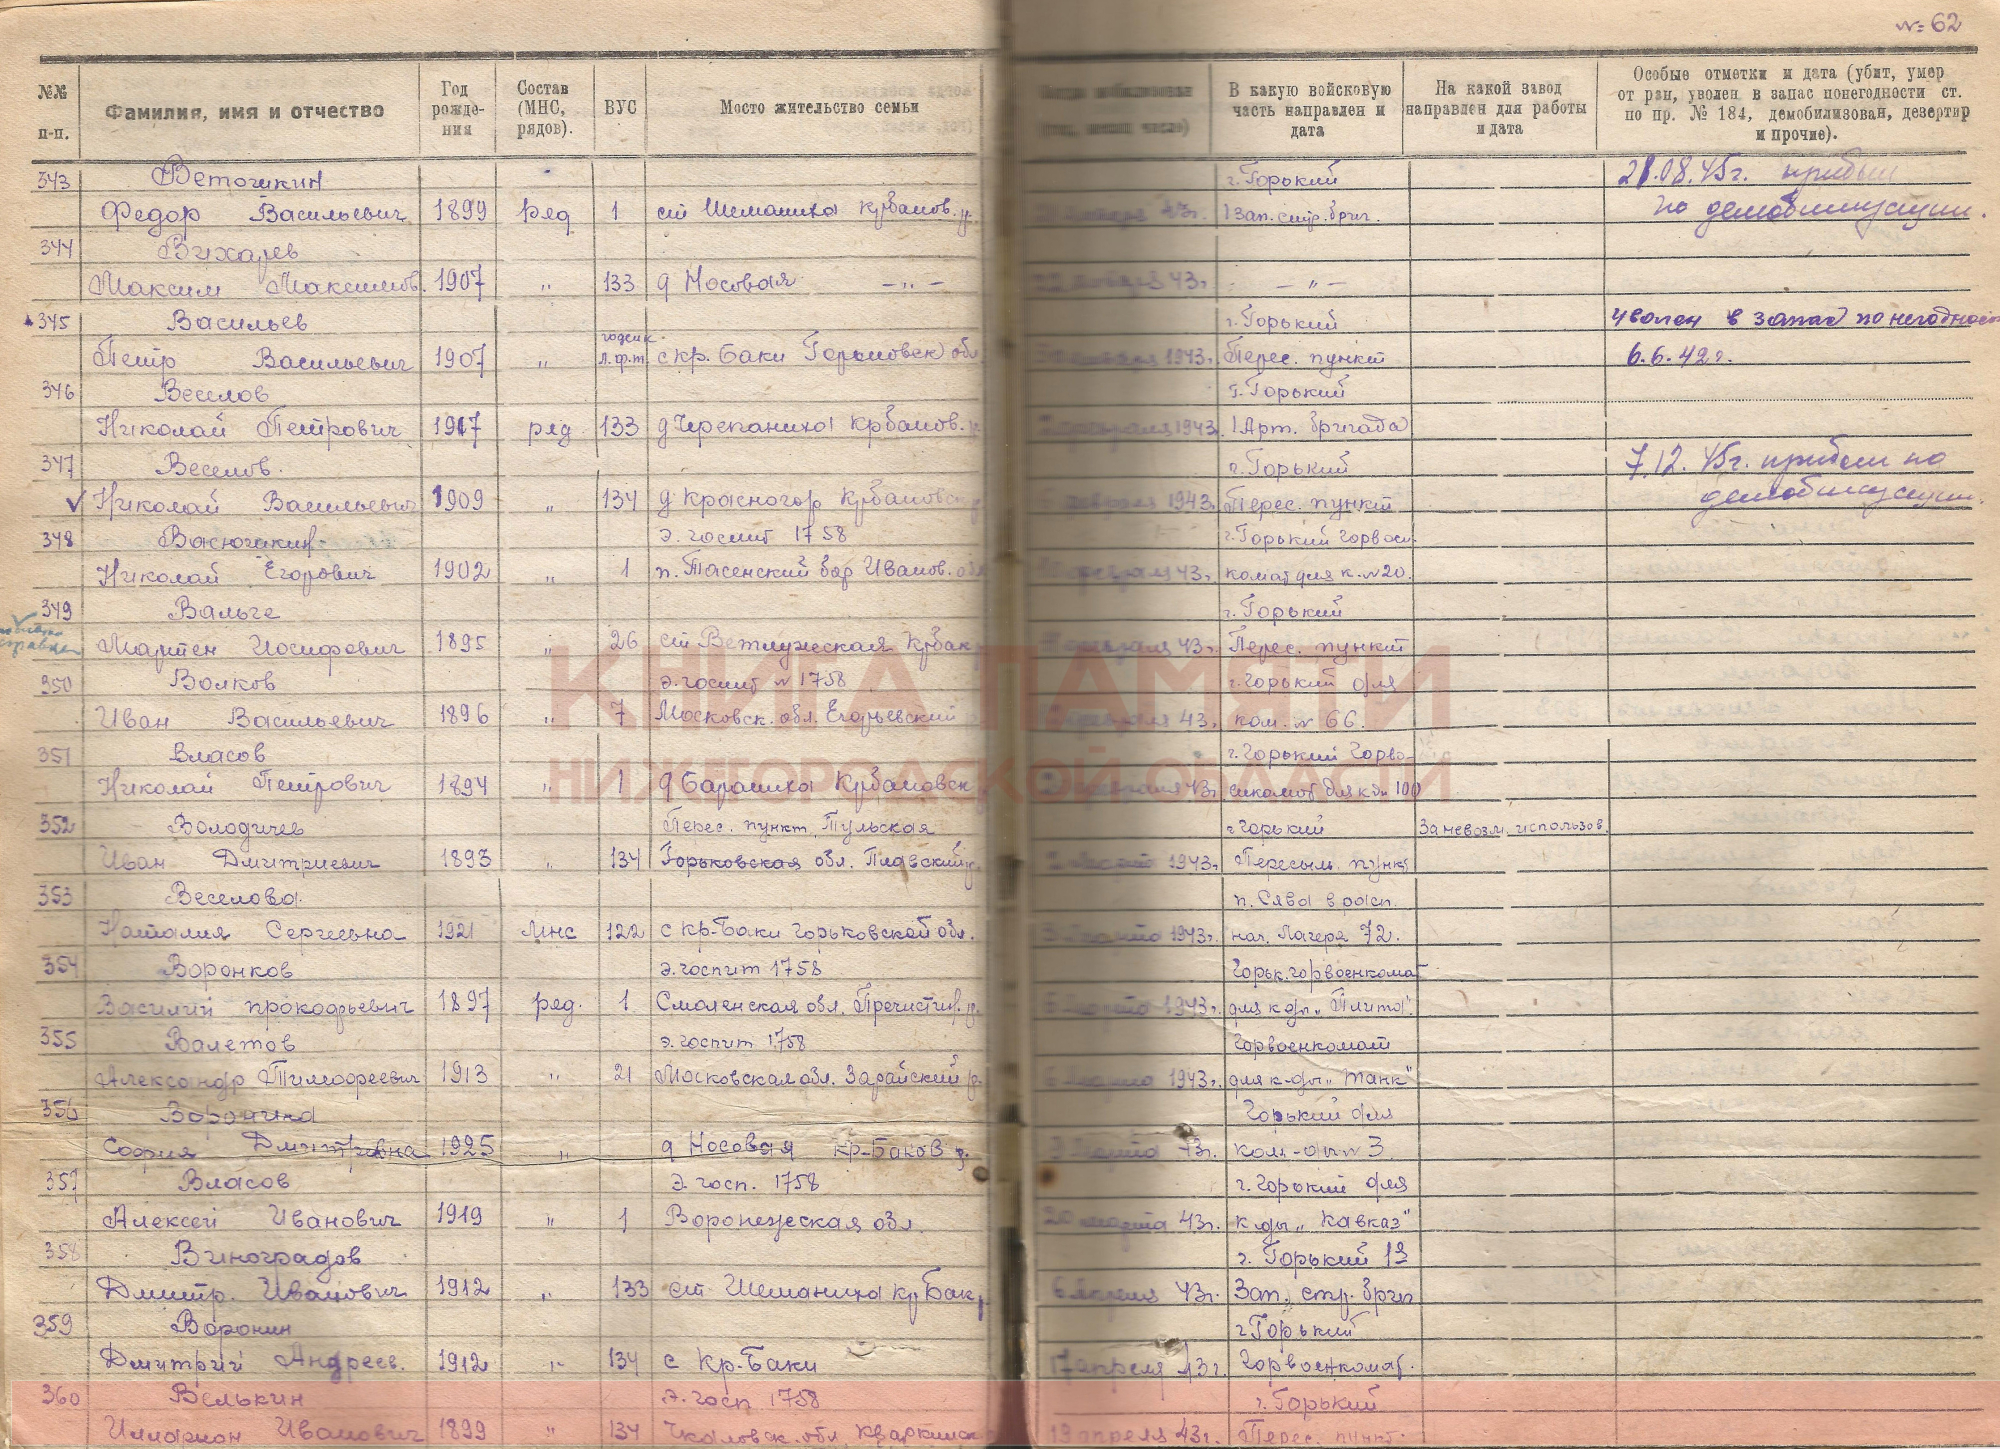 № 62
№№ п-п. Фамилия, имя и отчество Год рожде-ния Состав (МНС, рядов). ВУС Мосто жительство семьи В какую войсковую часть направлен и дата На какой завод направлен для работы и дата Особые отметки и дата (убит, умер от ран, уволен в запас понегодности ст. по пр. № 184, демобилизован, дезертир и прочие).
343 Веточикин г. Горький 21.08.45г. прибыл
Федор Васильевич 1899 ряд 1 ст Шеманиха Крбаков. р. 43г. 1 зап. стр. бриг. по демобилизации.
344 Вихарев
Максим Максимов. 1907 " 133 д Носовая —"— 43г — " —
345 Васильев г. Горький уволен в запас по негодност
Петр Васильевич 1907 " годен к л. ф. т. с кр. Баки Горьковск обл 1943г. Перес. пункт 6.6.42г.
346 Веселов г. Горький
Николай Петрович 1917 ряд 133 д Черепаниха Крбаков. р. февраля 1943 1 Арт. бригада
347 Веселов. г. Горький 7.12.45г. прибыл по
Николай Васильевич 1909 " 134 д Красногор Крбаковск февраля 1943. Перес. пункт демобилизации.
348 Васючакин э. госпит 1758 г. Горький Горвоен
Николай Егорович 1902 " 1 п. Тасенский бор Иванов. обл февраля 43г. комат для к. №20.
349 Вальге г. Горький
Мартен Иосифович 1895 " 26 ст Ветлужская Крбак февраля 43г. Перес. пункт
350 Волков э. госпит № 1758 г. Горький для
Иван Васильевич 1896 " 7 Московск. обл. Егорьевский февраля 43г. ком. № 66.
КНИГА ПАМЯТИ
351 Власов г. Горький Горво-
НИЖЕГОРОДСКОЙ ОБЛАСТИ
Николай Петрович 1894 " 1 д Бараниха Крбаковск 43г енкомат для к № 100
352 Володичев Перес. пункт Тульская г Горький За невозм. использов.
Иван Дмитриевич 1893 " 134 Горьковская обл. Плавский р. марта 1943г. Пересыл. пунк
353 Веселова п. Сява в расп.
Наталия Сергеевна 1921 Мнс 122 с кр-Баки Горьковской обл. марта 1943г. нач. Лагеря 72.
354 Воронков э. госпит 1758 Горьк. горвоенкомат
Василий прокофьевич 1897 ряд. 1 Смоленская обл. Пречистин. р. 5 марта 1943г. для к-ды "Плита".
355 Валетов э. госпит 1758 Горвоенкомат
Александр Тимофеевич 1913 " 21 Московская обл. Зарайский р. 6 марта 1943г. для к-ды "Танк"
356 Воронина Горький для
София Дмитровна 1925 " д Носовая кр-Баков р. 9 марта 43г. ком-ды № 3.
357 Власов Э. госп. 1758 г. Горький для
Алексей Иванович 1919 " 1 Воронежская обл. 20 марта 43г. к-ды "Кавказ"
358 Виноградов г. Горький 1я
Дмитр. Иванович 1912 " 133 ст Шеманиха кр Бак. р. 6 Апреля 43г. Зап. стр. бриг
359 Воронин г Горький
Дмитрий Андреев. 1912 " 134 с Кр-Баки 17 апреля 43г. Горвоенкомат.
360 Велькин э. госп 1758 г. Горький
Илларион Иванович 1899 " 134 Чкаловск. обл. Кваркинск 19 апреля 43г. Перес. пункт.